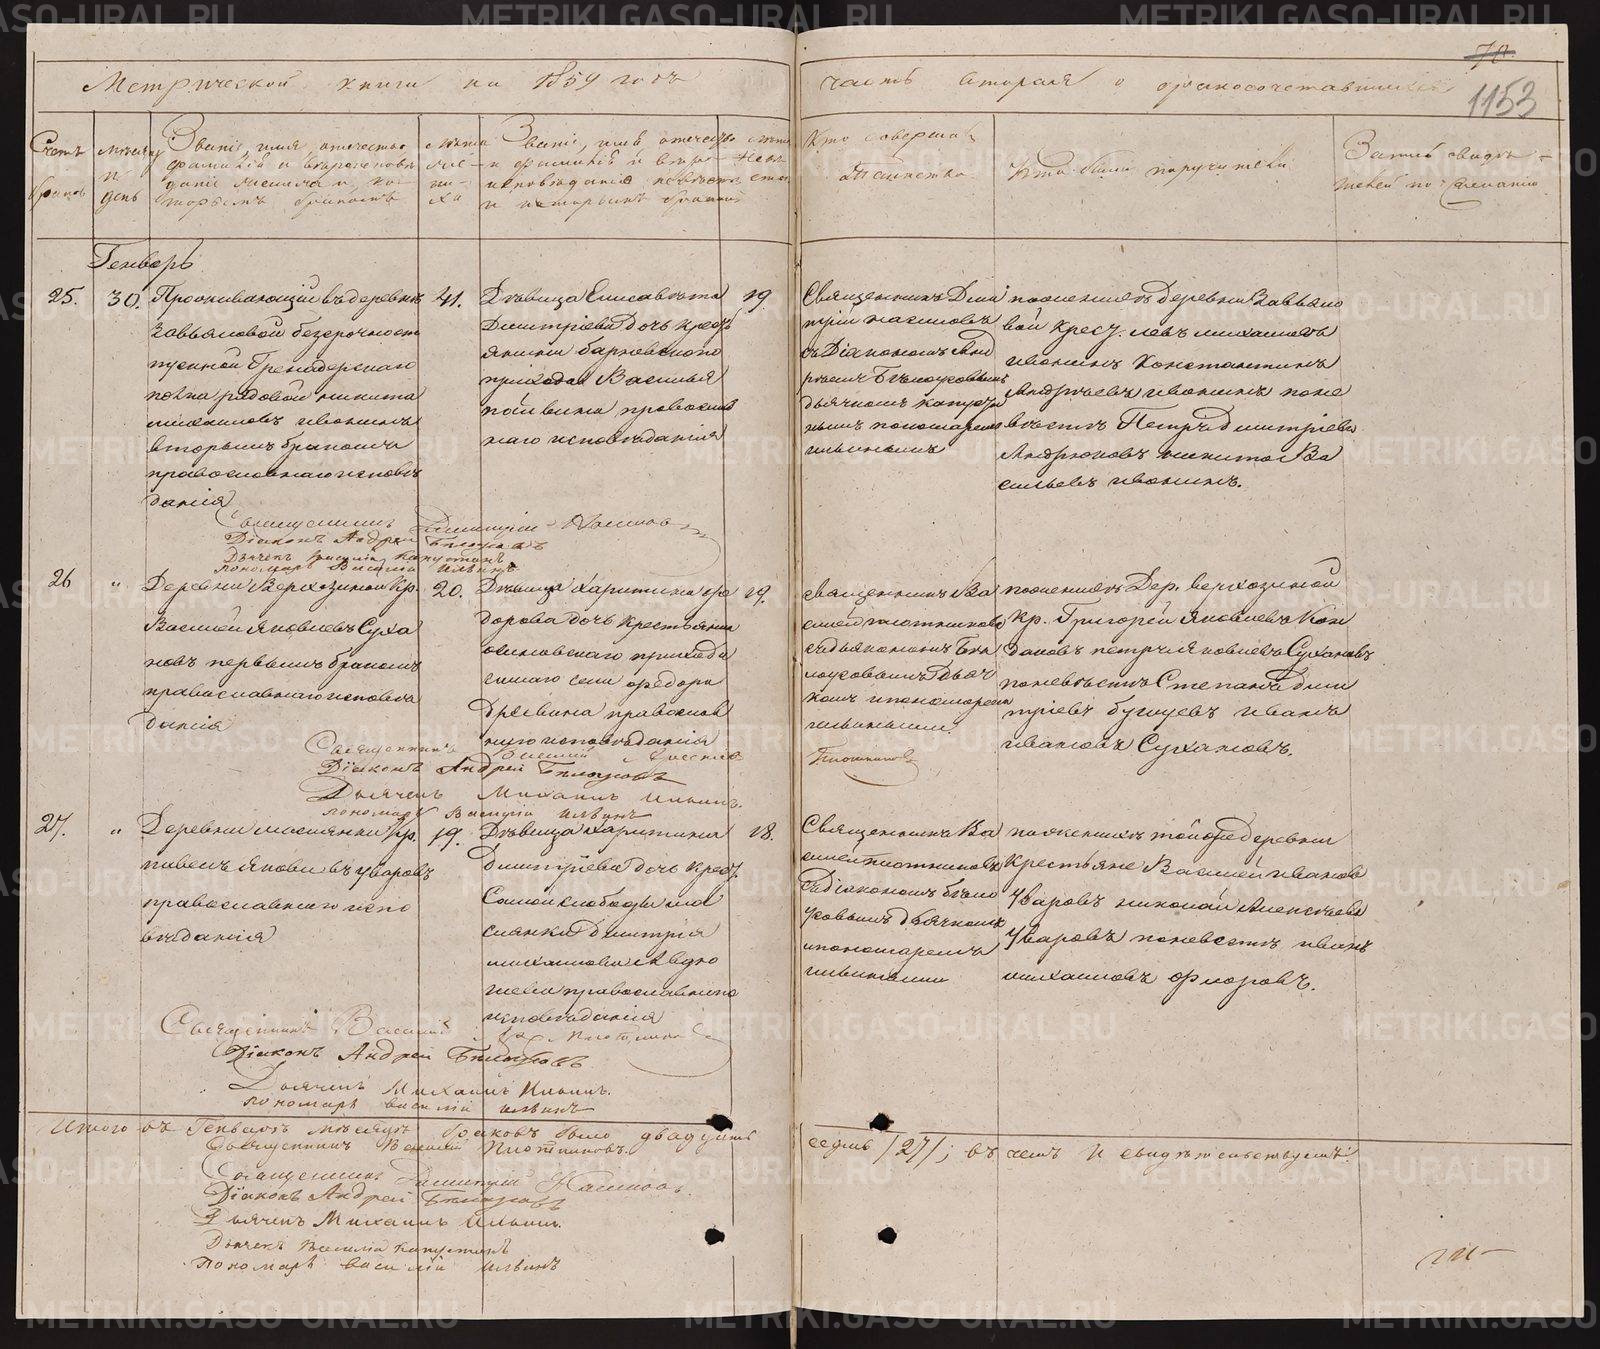 Метрической книги на 1859 годъ
часть вторая о бракосочетавшихся
70
1153
Счетъ браковъ
Мѣсяцъ и день
Званіе, имя, отчество
фамилія и вѣроисповѣ
даніе жениха и, ко
торымъ бракомъ
лѣта
же-
ни-
ха
Званіе, имя, отчество
и фамилія и вѣро-
исповѣданіе невѣсты
и которымъ бракомъ
лѣта
невѣ
сты
Кто совершалъ
таинство
Кто были поручители
Запись свидѣ-
телей по желанію
Генварь
25.
30.
Проживающій въ деревнѣ
Завьяловой безсрочноот
пускной Гренадерскаго
полка рядовой никита
михаиловъ ивонинъ
вторымъ бракомъ
православнаго исповѣ
данія
41.
Дѣвица Елисавета
Димитріева дочь крест
янина
прихода Василья
православ
наго исповѣданія
19.
Священникъ Дим
трій насоновъ
съ Діакономъ Анд
реемъ Бѣлоусовымъ
дьячкомъ капусти
нымъ пономаремъ
ильинымъ
по женихѣ деревни Завьяло
вой крест. левъ михаиловъ
ивонинъ Константинъ
Андреевъ ивонинъ по не
вѣстѣ Петръ Димитріевъ
Андрюковъ никита Ва
сильевъ ивонинъ.
Священникъ Димитрій Насонов
Діаконъ Андрей Бѣлоусовъ
Дьячекъ Василій Капустинъ
пономарь Василій Ильинъ
26
"
Деревни Верхозиной Кр.
Василей Яковлевъ Суха
новъ первымъ бракомъ
православнаго исповѣ
данія
20.
Дѣвица Харитина Фе
дорова дочь Крестьянина
осиновскаго прихода
сего села Федора
православ
наго исповѣданія
19.
священникъ Ва
силей плотниковъ
съ діакономъ Бѣ
лоусовымъ Дьяч
комъ и пономаремъ
ильиными
Плотниковъ
по женихѣ Дер. верхозиной
Кр. Григорей Яковлевъ Кон
даковъ петръ Яковлевъ Сухановъ
по невѣстѣ Степанъ Дим
тріевъ бугуевъ иванъ
ивановъ Сухановъ.
Священникъ Василій
Діаконъ Андрей Бѣлоусовъ
Дьячекъ Михаилъ Ильинъ.
пономарь Василій Ильинъ
27.
"
Деревни маслянки Кр.
павелъ Яковлевъ уваровъ
православнаго испо
вѣданія
19.
Дѣвица харитина
Димитріева дочь Крест.
Самой слободы ма
слянки Димитрія
михаилова Авдю
шева православнаго
исповѣданія
18.
Священникъ Ва
силей плотниковъ
съ діакономъ бѣло
усовымъ дьячкомъ
и пономаремъ
ильиными
по женихѣ той же деревни
Крестьяне Василей иванов
Уваровъ николай Алексѣевъ
Уваровъ по невѣстѣ иванъ
михаиловъ флоровъ.
Священникъ Василій Плотников
Діаконъ Андрей Бѣлоусовъ
Дьячекъ Михаилъ Ильинъ.
пономарь василій Ильинъ
Итого въ Генварѣ мѣсяцѣ браковъ было двадцать
седмь /27/; въ чемъ и свидѣтельствуемъ:
Священникъ Василій Плотниковъ.
Священникъ Димитрій Насонов.
Діаконъ Андрей Бѣлоусовъ
Дьячекъ Михаилъ Ильинъ.
Дьячекъ Василій Капустинъ
Пономарь Василій Ильинъ
METRIKI.GASO-URAL.RU